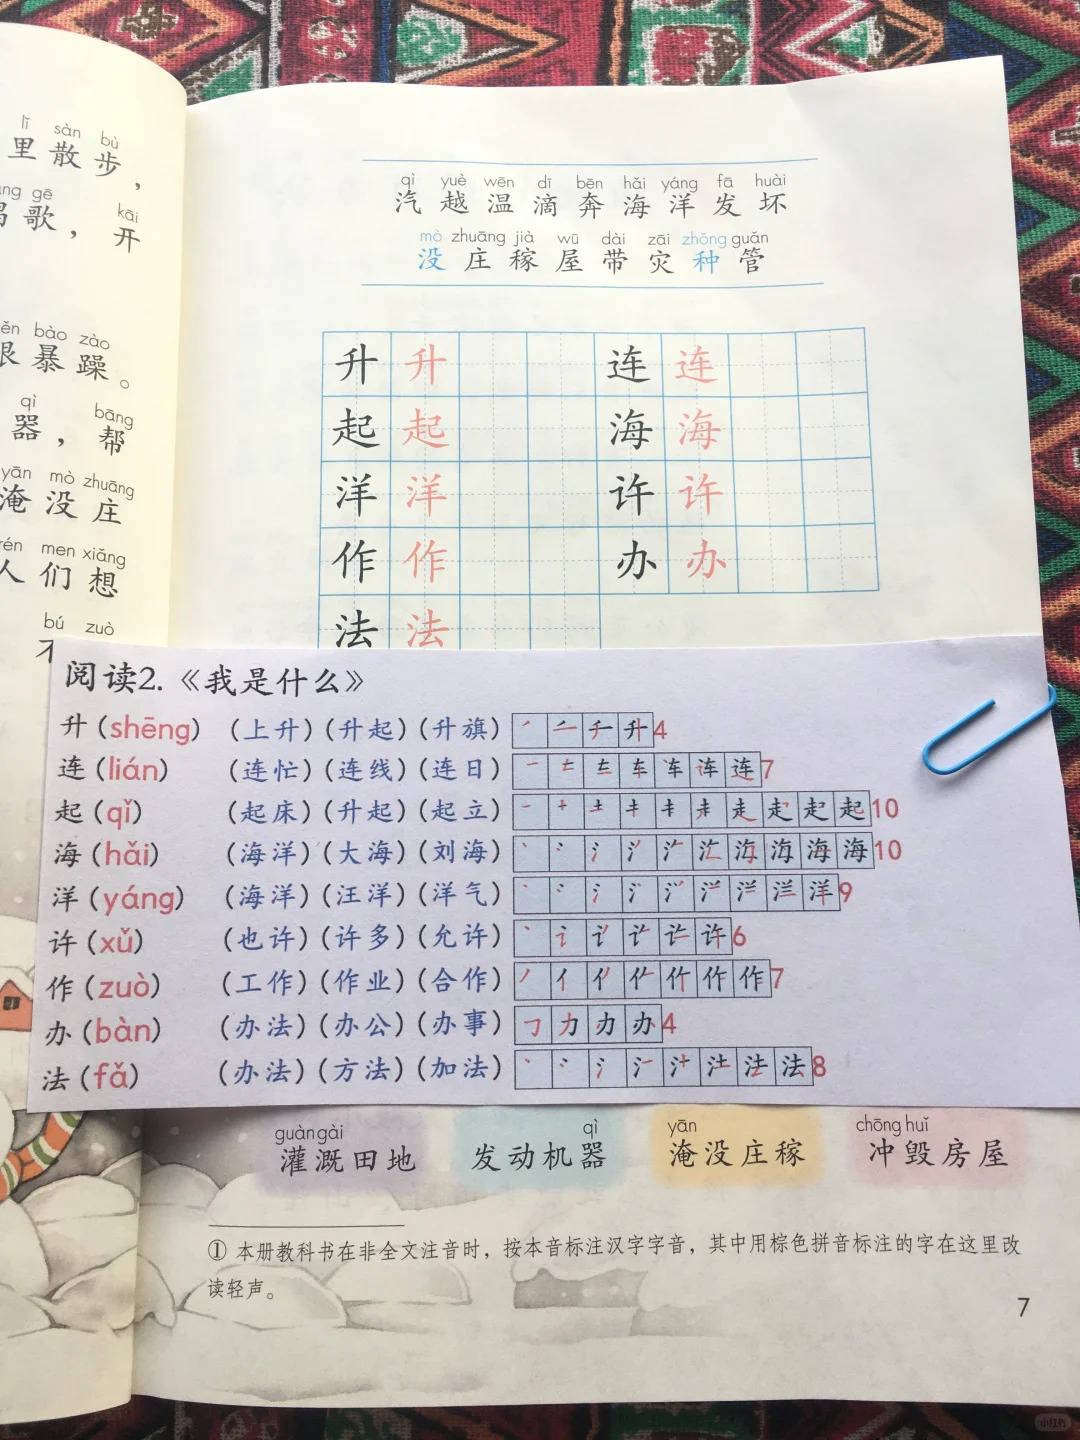 lǐ sàn bù
里散步，
gē
歌，开
kāi
bào zào
暴躁。
qì bāng
器，帮
yān mò zhuāng
淹没庄
rén men xiǎng
人们想
bú zuò
qì yuè wēn dī bēn hǎi yáng fā huài
汽越温滴奔海洋发坏
mò zhuāng jià wū dài zāi zhǒng guǎn
没庄稼屋带灾种管
升升 连连
起起 海海
洋洋 许许
作作 办办
法法
阅读2.《我是什么》
升(shēng) (上升)(升起)(升旗) 升4
连(lián) (连忙)(连线)(连日) 车车连连7
起(qǐ) (起床)(升起)(起立) 土走起起起10
海(hǎi) (海洋)(大海)(刘海) 海海10
洋(yáng) (海洋)(汪洋)(洋气) 洋9
许(xǔ) (也许)(许多)(允许) 许6
作(zuò) (工作)(作业)(合作) 作作7
办(bàn) (办法)(办公)(办事) 力办办4
法(fǎ) (办法)(方法)(加法) 法法8
guàn gài qì yān chōng huǐ
灌溉田地 发动机器 淹没庄稼 冲毁房屋
① 本册教科书在非全文注音时，按本音标注汉字字音，其中用棕色拼音标注的字在这里改
读轻声。
7
小红书